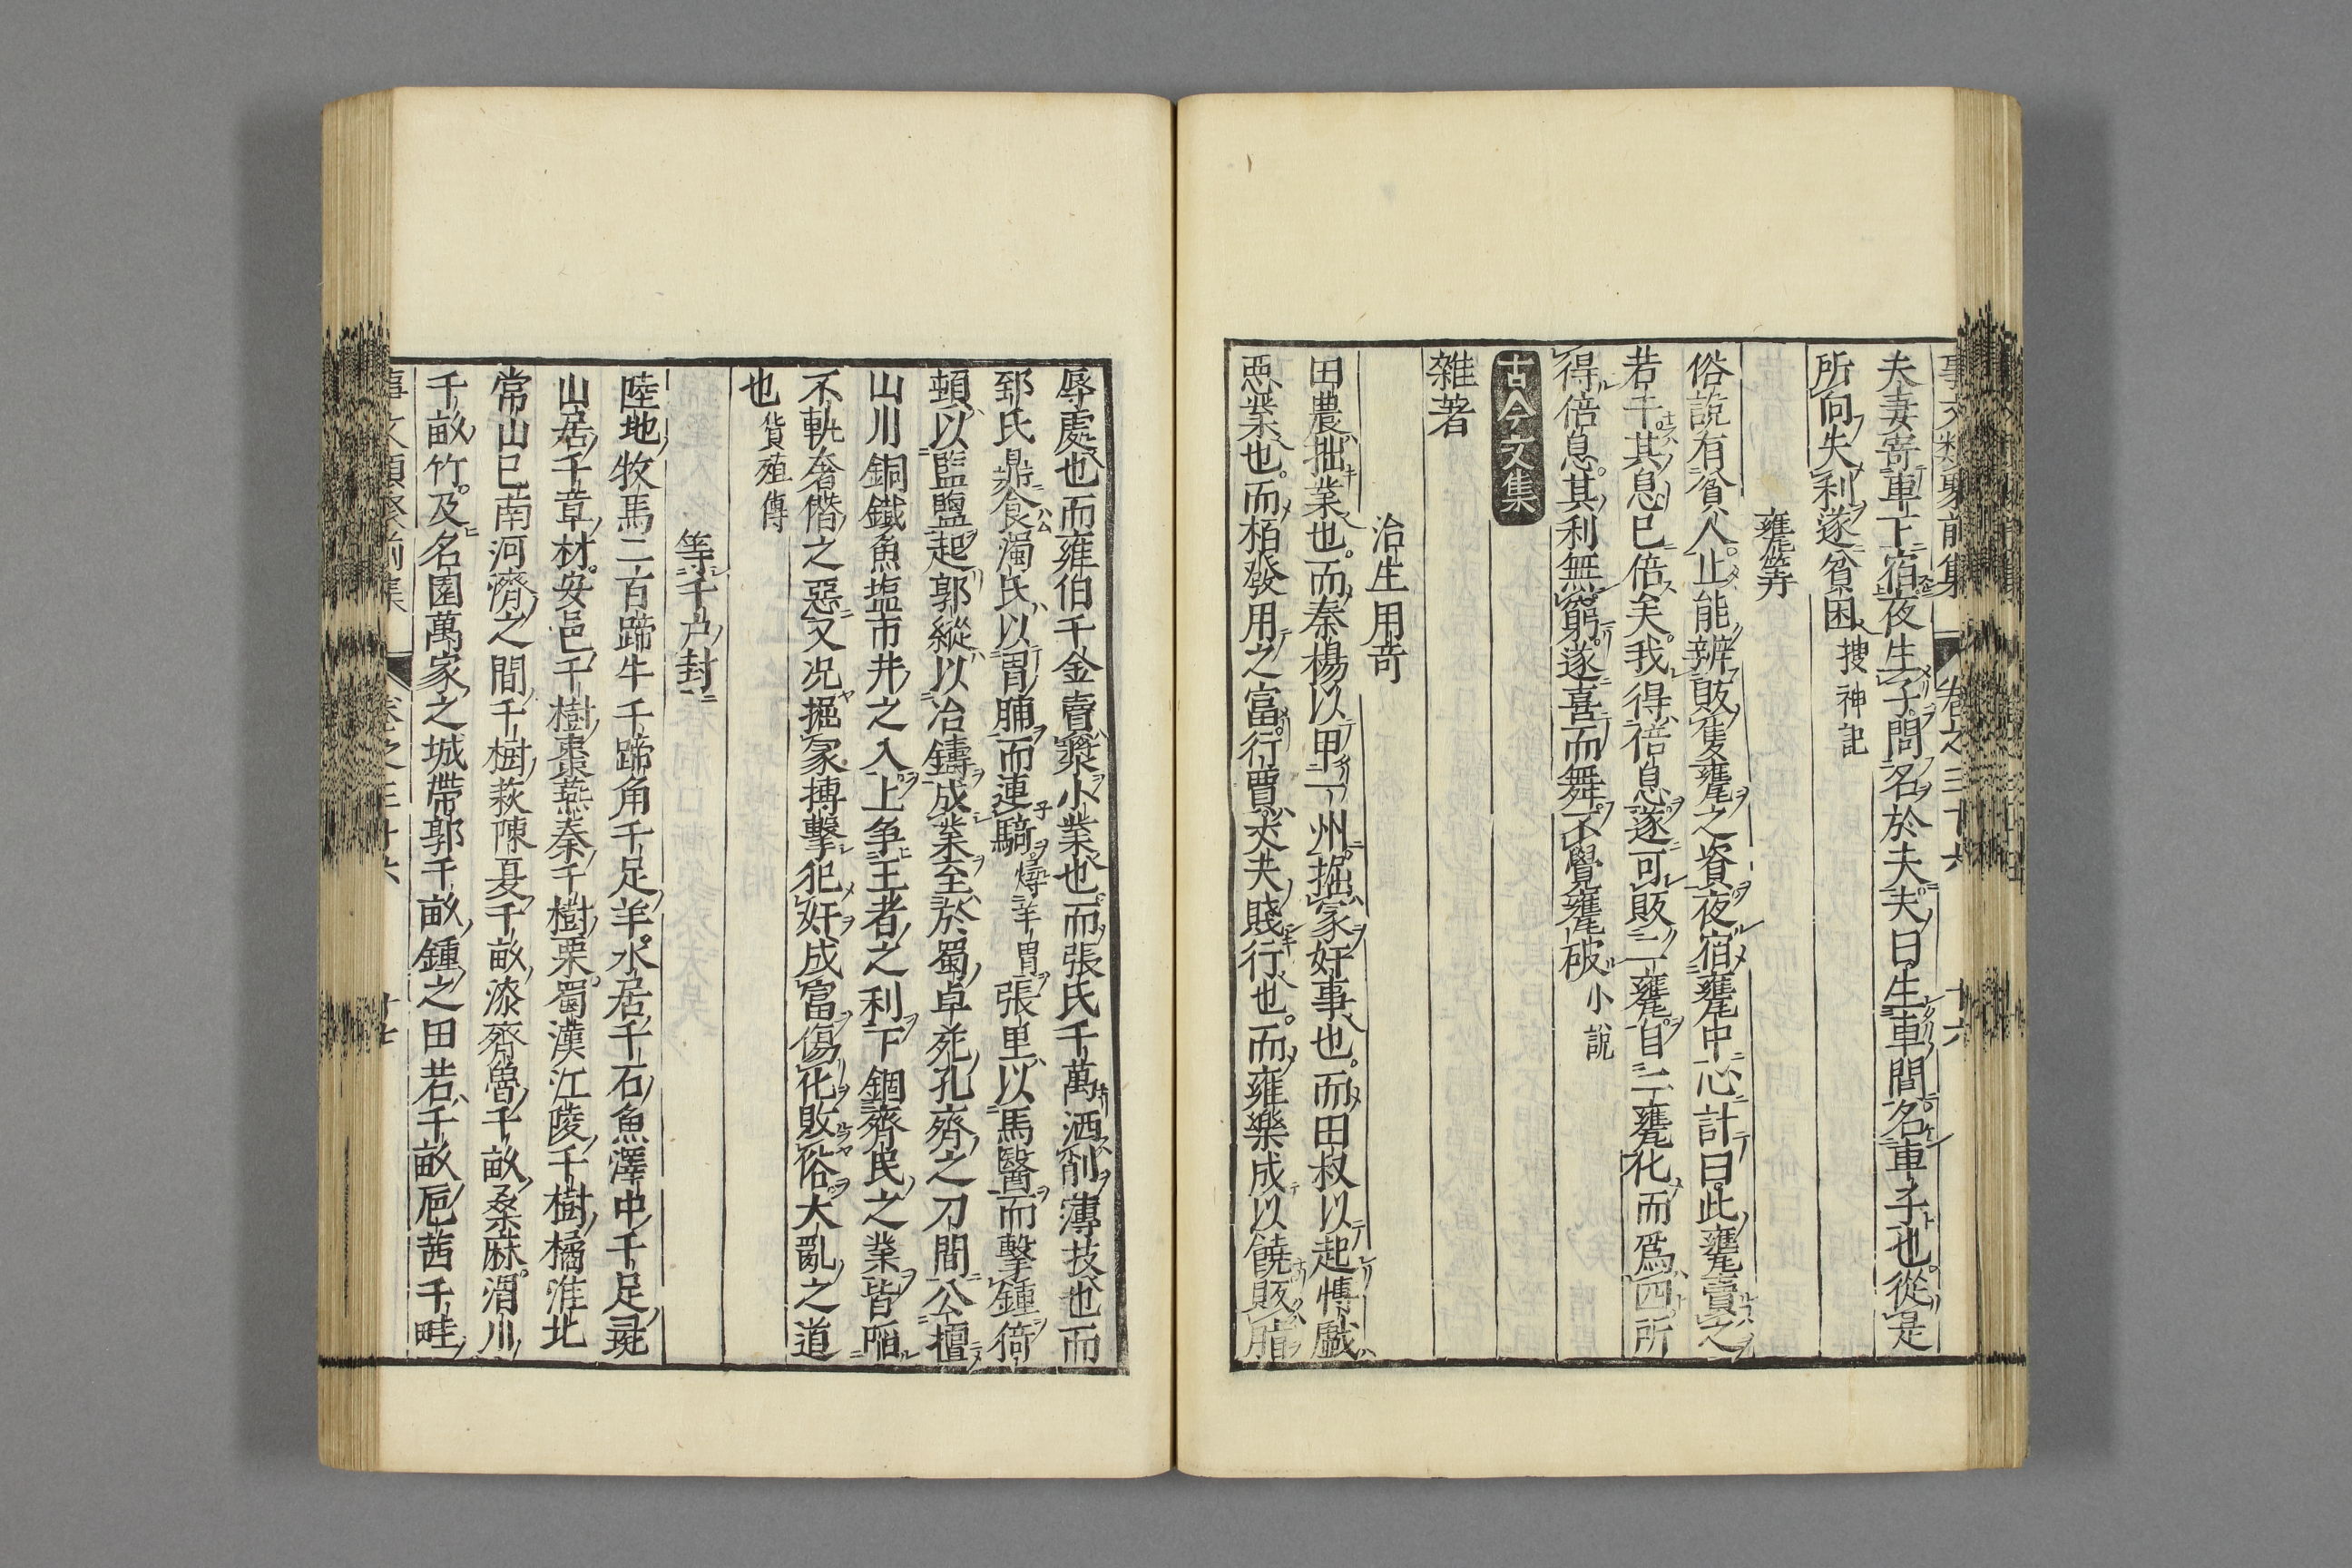 夫妻寄車下宿夜生子問名於夫夫曰生車間名車子也從是
所向失利遂貧困 搜神記
甕筭
俗說有貧人止能辨敗隻甕之資夜宿甕中心計曰此甕賣之
若干其息已倍矣我得倍息遂可敗二甕自二甕化而爲四所
得倍息其利無窮遂喜而舞不覺甕破 小說
古今文集
雜著
治生用奇
田農拙業也而秦楊以甲一州掘冢奸事也而田叔以起慱戲
惡業也而栢發用之富行賈丈夫賤行也而雍樂成以饒販脂
辱處也而雍伯千金賣漿小業也而張氏千萬洒削薄技也而
郅氏鼎食濁氏以胃脯而連騎 燖羊胃 張里以馬醫而擊鍾猗
頓以監鹽起郭縱以冶鑄成業至於蜀卓死孔齊之刀間公擅
山川銅鐵魚塩市井之入上争王者之利下錮齊民之業皆陷
不軌奢僭之惡又况掘冢搏擊犯奸成富傷化敗俗大亂之道
也 貨殖傳
等千户封
陸地牧馬二百蹄牛千蹄角千足羊水居千石魚澤中千足彘
山居千章材安邑千樹棗燕秦千樹栗蜀漢江陵千樹橘淮北
常山已南河濟之間千樹萩陳夏千畝漆齊魯千畝桑麻渭川
千畝竹及名園萬家之城帶郭千畝鍾之田若千畝巵茜千畦